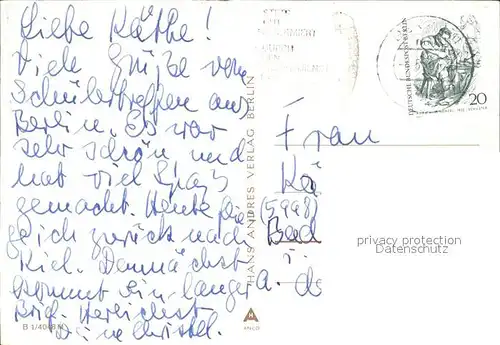 Liebe Käthe!
Viele Grüße vom
Schülertreffen aus
Berlin. Es war
sehr schön und
hat viel Spaß
gemacht. Heute
ich zurück nach
Kiel. Demnächst
kommt ein langer
Brief. Herzlichst
Deine Christel.
B 1/4048 M
HANS ANDRES VERLAG BERLIN
ANCO
DEUTSCHE BUNDESPOST BERLIN
20
Frau
Kä
Bad
privacy protection
Datenschutz